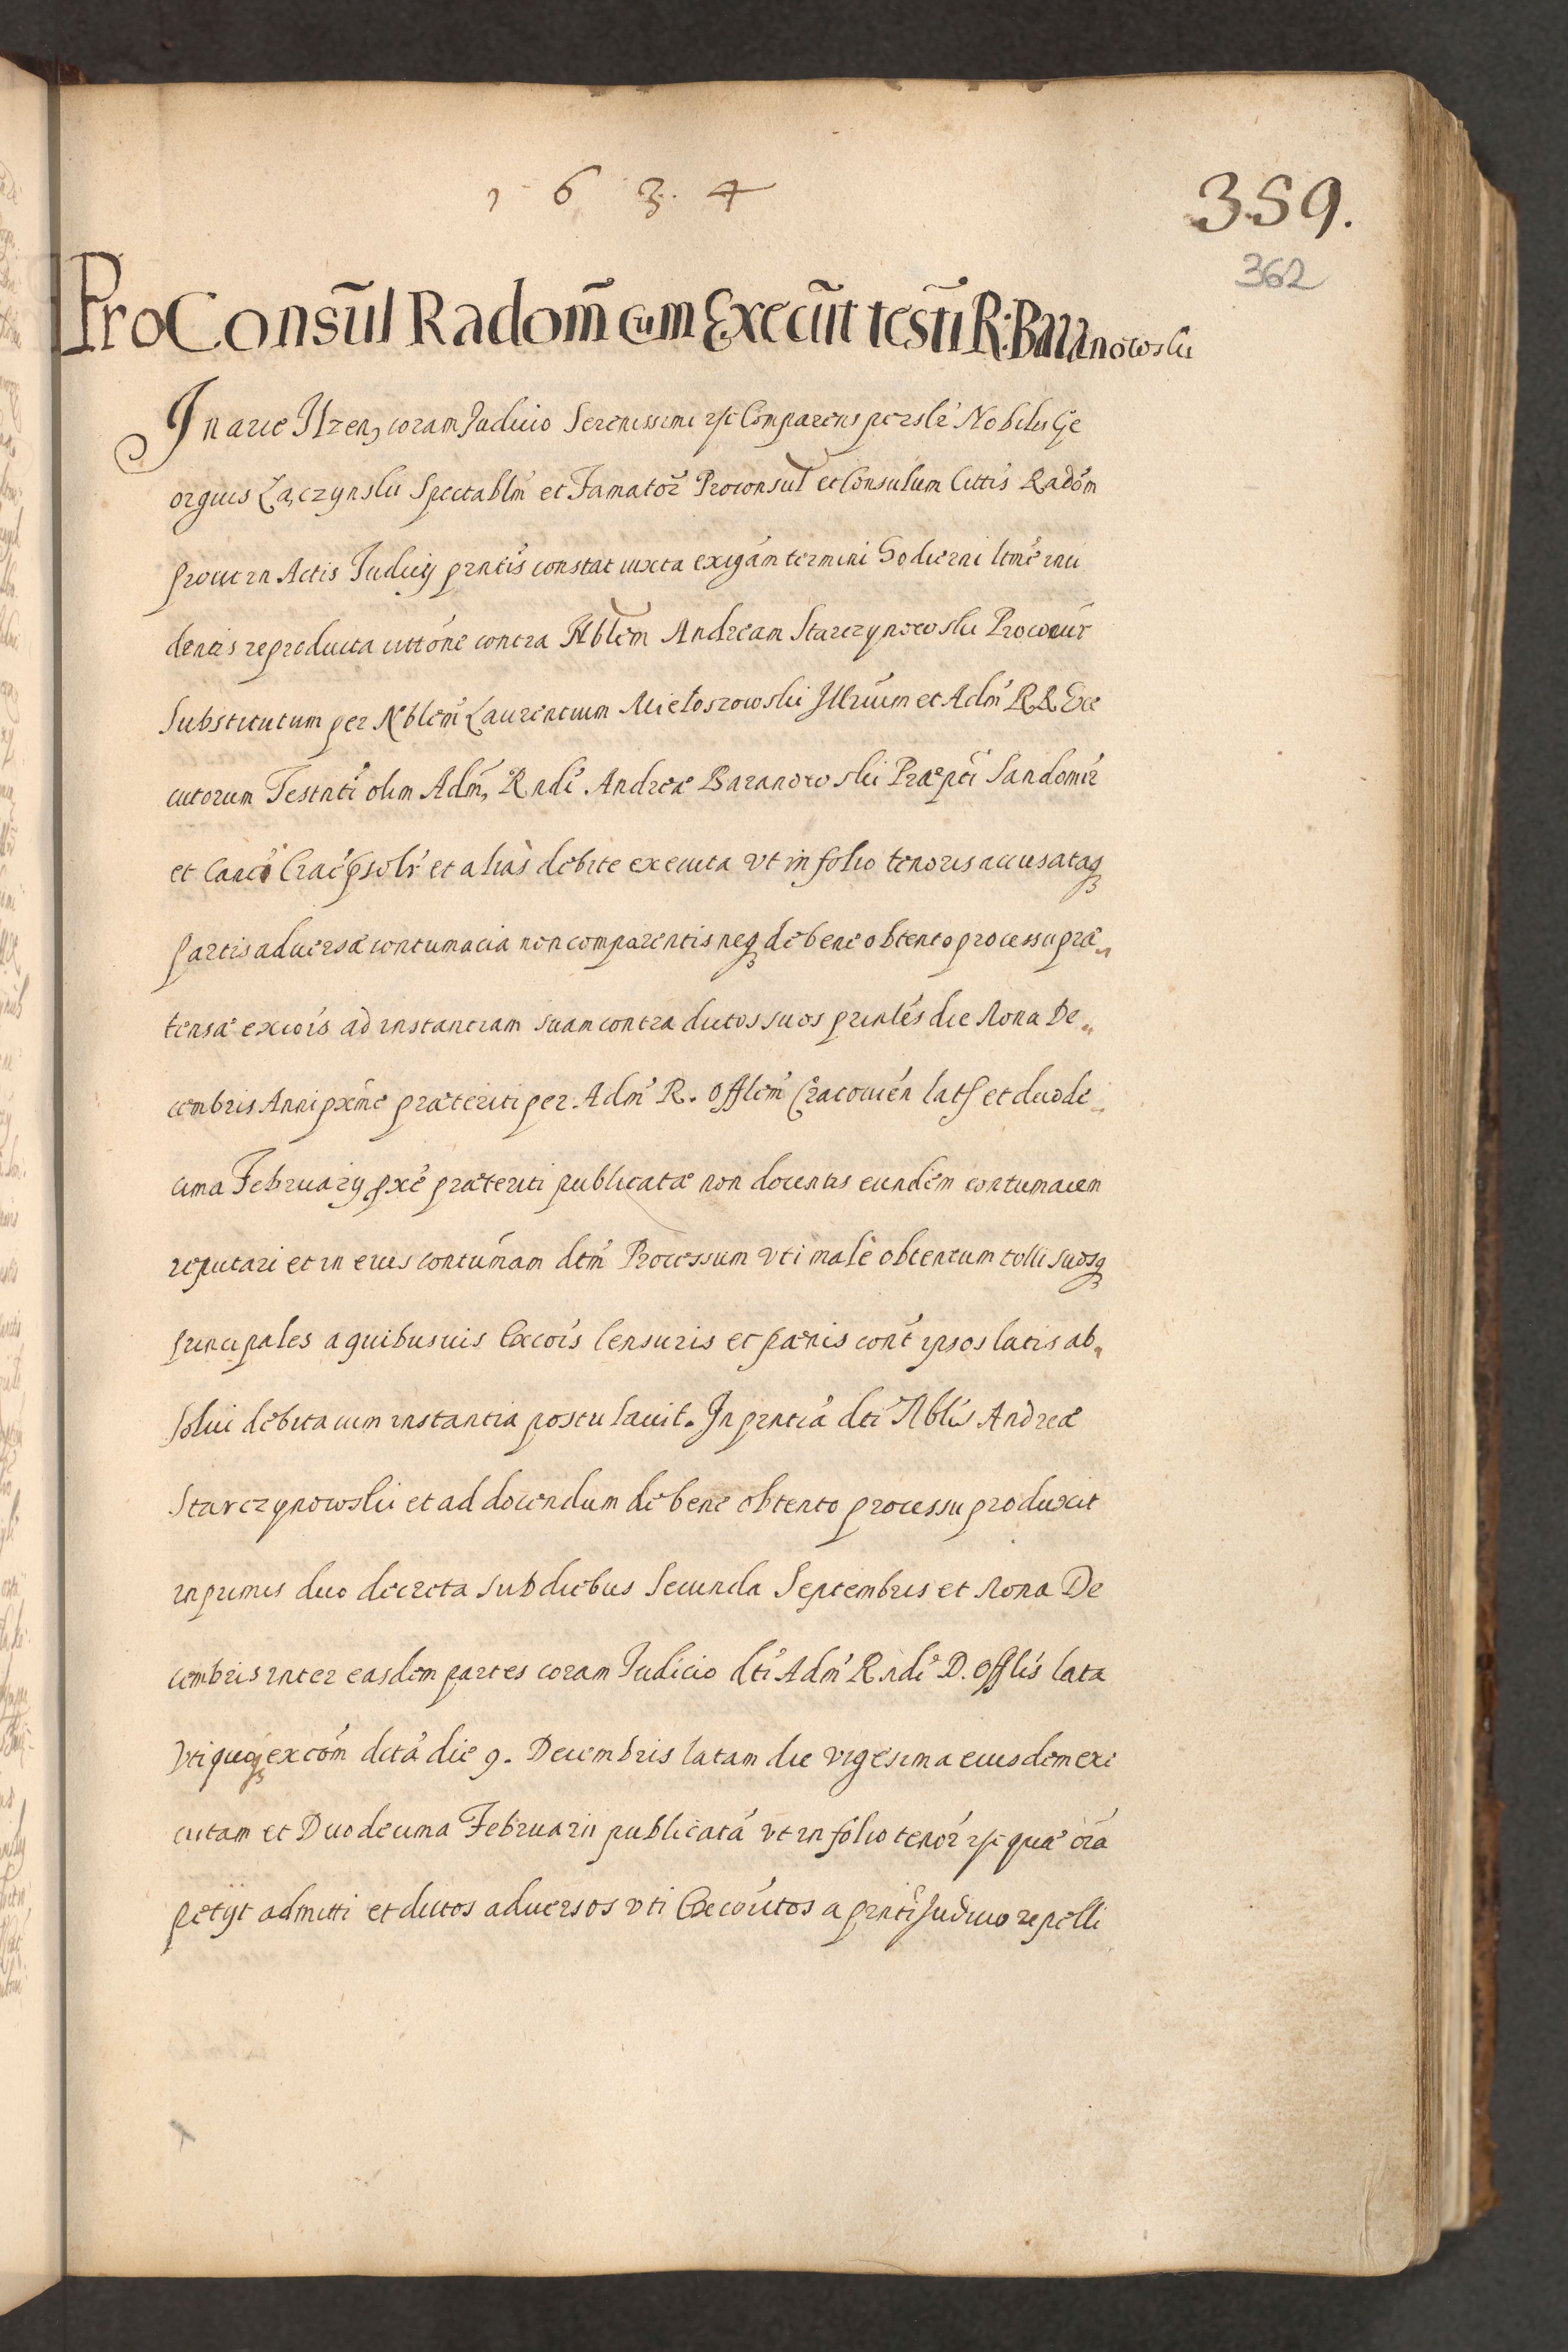 1 6 3. 4
359.
362
ProConsūl Radom̄ cum Execūt testī R: Baranowski
In arce Ilzen, coram Iudicio Serenissimi etc Comparens persl̃r Nobilis Ge
orgius Łączynski Spectablm̃ et Famator̃ Proconsul̃ et Consulum Cittis̃ Radom̃
prout in Actis Iudicij pr̃ntis constat iuxta exigam̃ termini hodierni ltm̃e inci
dentis reproducta citt̃one contra Nblem̃ Andream Starczynowski Procour̃
Substitutum per Nblem̃ Laurentium Mietoszowski Illrium̃ et Adm̃ RR Exe
cutorum Testnti olim Adm̃, Rndi Andreæ Baranowski Præpti Sandomir̃
et Canci Crac̃ psolr̃ et alias debite executa vt in folio tenoris accusataq3
partis aduersæ contumacia non comparentis neq3 de bene obtento processu præ„
tensæ excois̃ ad instantiam suam contra dictos suos prinles̃ die Nona De„
cembris Anni pxm̃e præteriti per Adm̃ R. Offlem̃ Cracouien̄ latę et duode„
cima February pxe præteriti publicatæ non docentis eundem contumacem
reputari et in eius contum̃am dtm̃ Processum vti male obtentum tolli suosq3
principales a quibusuis Excois̃ Censuris et pænis cont̃ ipsos latis ab„
solui debita cum instantia postulauit. In prntia dti Nblis Andreæ
Starczynowski et ad docendum de bene obtento processu produxit
inprimis duo decreta sub diebus Secunda Septembris et Nona De
cembris inter easdem partes coram Iudicio dti Adm̃ Rndi D. Offlis lata
Vti quoq3 excom̃ dicta die 9. Decembris latam die vigesima eiusdem exe
cutam et Duodecima Februarii publicata vt in folio tenor̃ etc quæ oia
petijt admitti et dictos aduersos vti Excoic̃tos a prnti Iudicio repelli